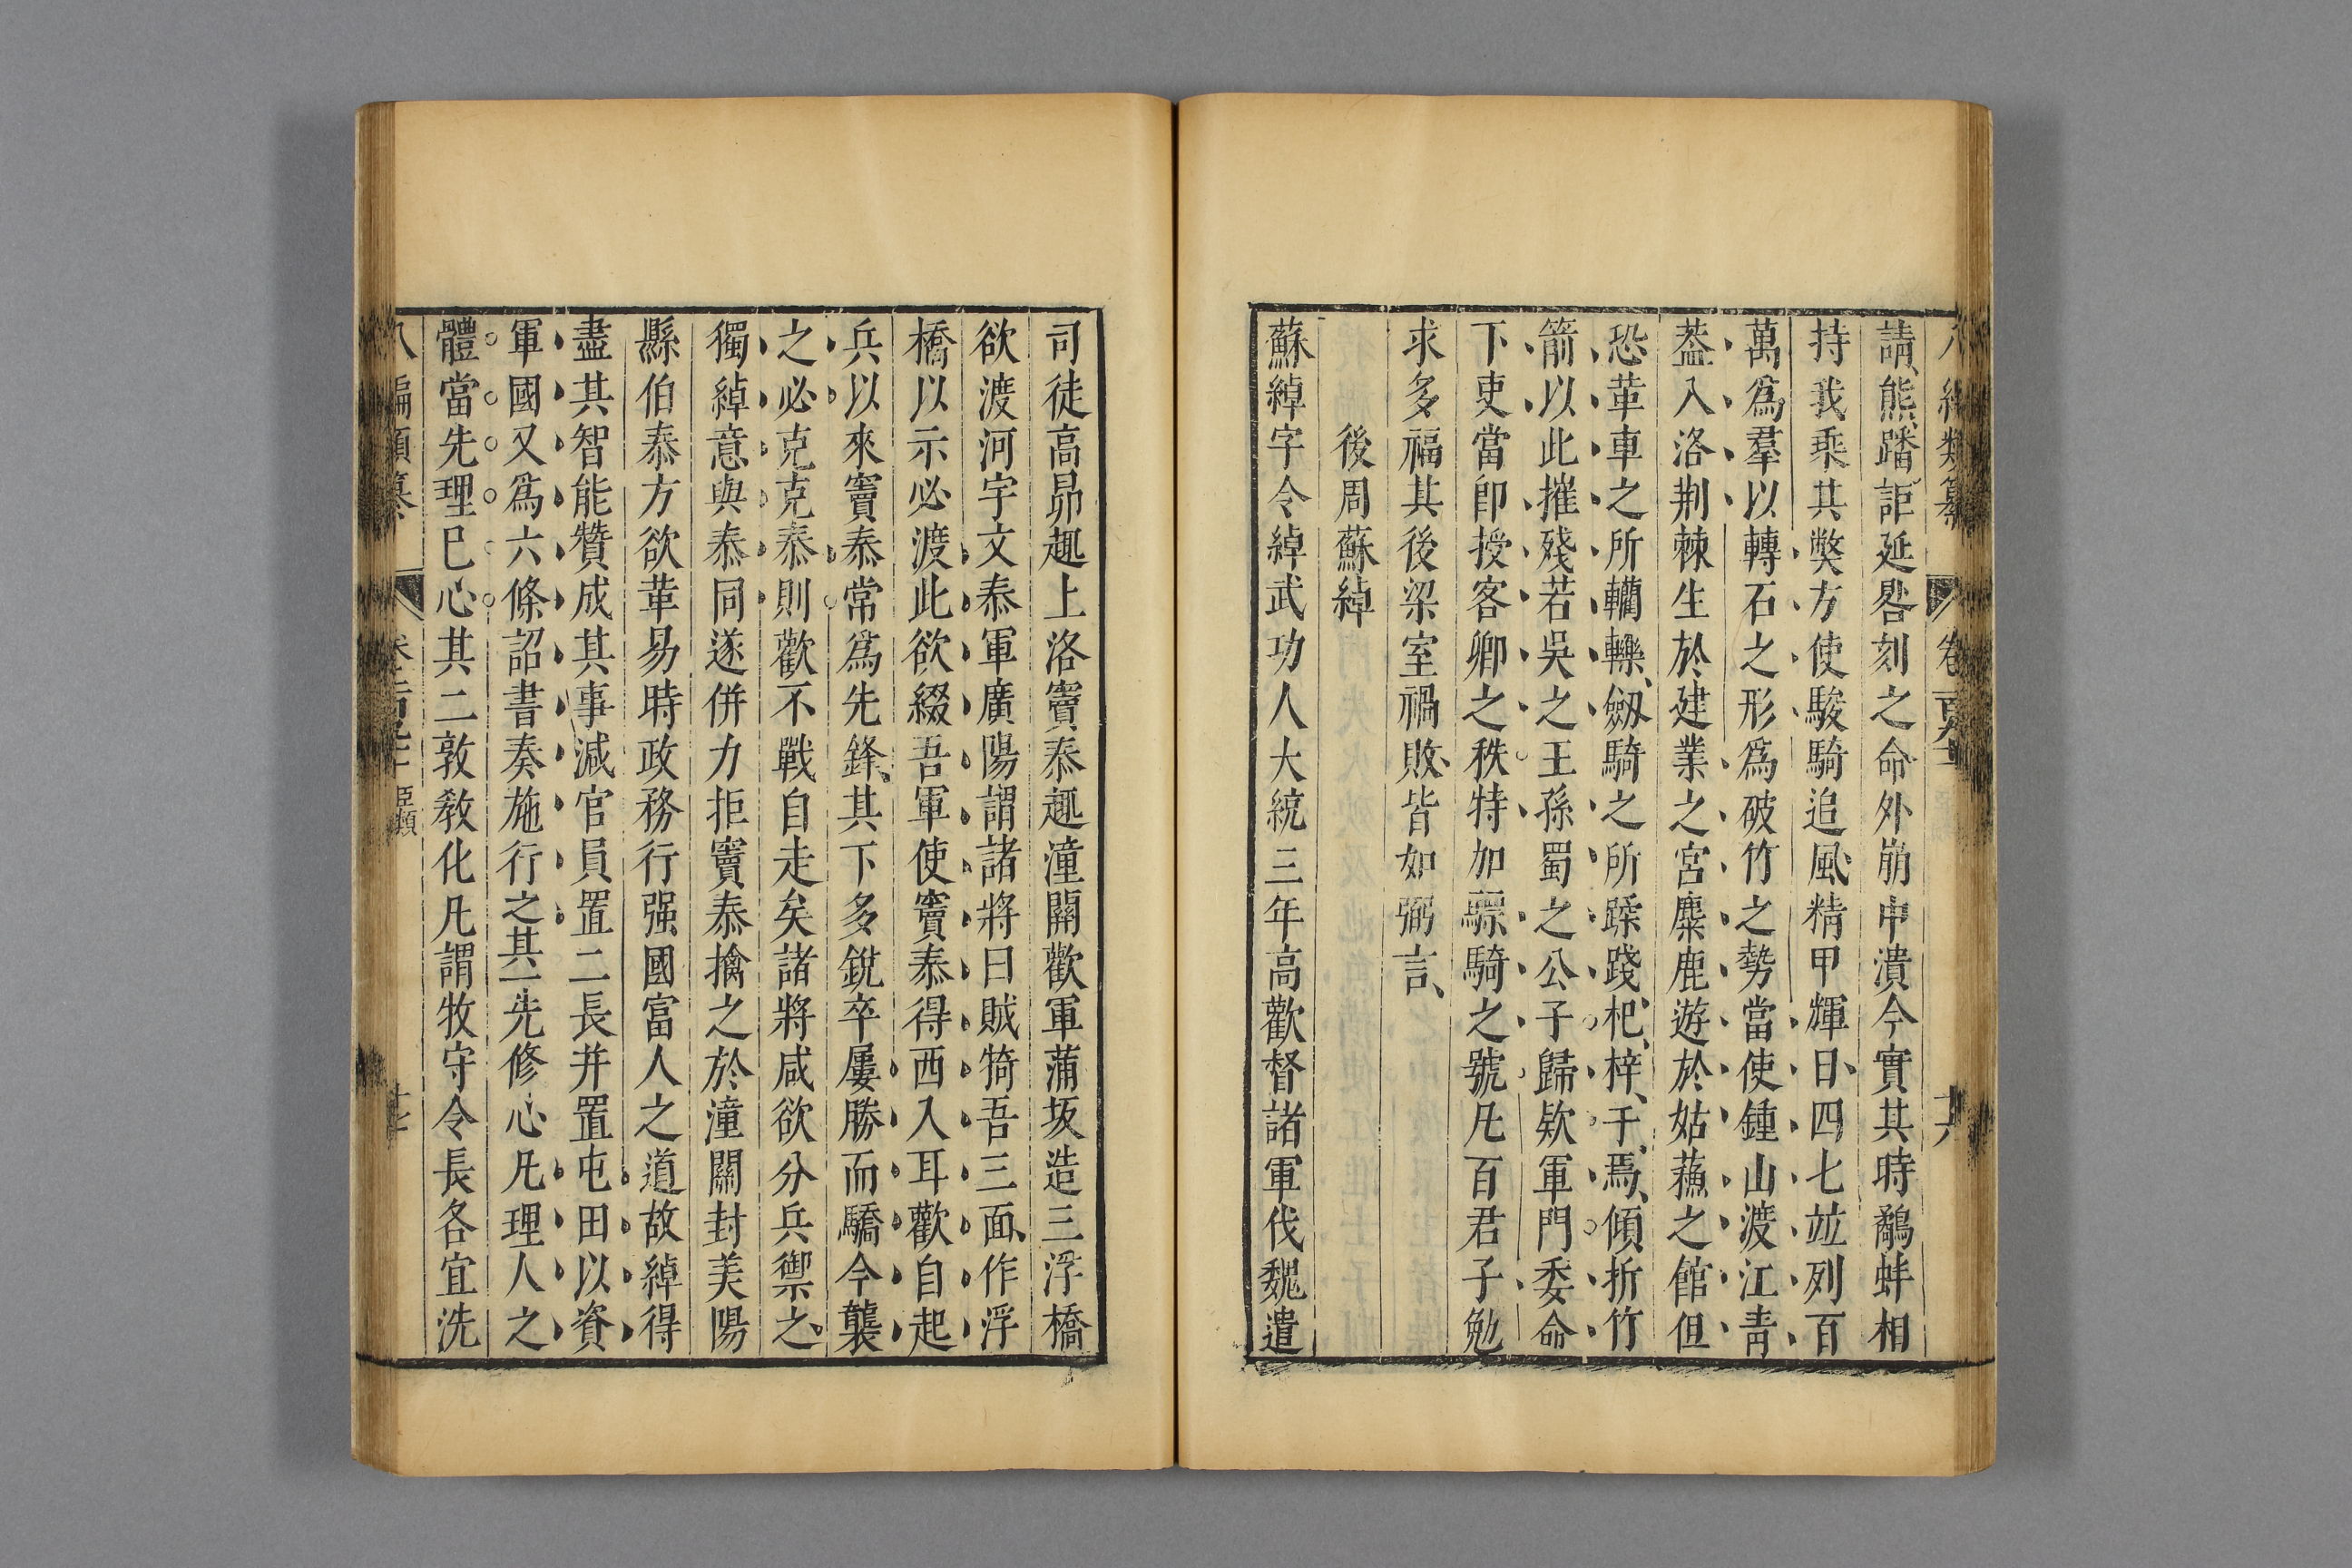 請熊蹯詎延晷刻之命外崩中潰今實其時鷸蚌相
持我乗其獘方使駿騎追風精甲輝日四七竝列百
萬爲羣以轉石之形爲破竹之勢當使鍾山渡江青
葢入洛荆棘生於建業之宮麋鹿遊於姑蘓之館但
恐革車之所轥轢劔騎之所蹂踐杞梓于焉傾折竹
箭以此摧殘若吳之王孫蜀之公子歸欵軍門委命
下吏當卽授客卿之秩特加驃騎之號凢百君子勉
求多福其後梁室禍敗皆如弼言
後周蘇綽
蘇綽字令綽武功人大統三年高歡督諸軍伐魏遣
司徒高昂趣上洛竇泰趣潼關歡軍蒲坂造三浮橋
欲渡河宇文泰軍廣陽謂諸將曰賊犄吾三面作浮
橋以示必渡此欲綴吾軍使竇泰得西入耳歡自起
兵以來竇泰常爲先鋒其下多銳卒屢勝而驕今襲
之必克克泰則歡不戰自走矣諸將咸欲分兵禦之
獨綽意與泰同遂併力拒竇泰擒之於潼關封美陽
縣伯泰方欲革易時政務行强國富人之道故綽得
盡其智能贊成其事减官員置二長并置屯田以資
軍國又爲六條詔書奏施行之其一先修心凢理人之
體當先理巳心其二敦敎化凢謂牧守令長各宜洗